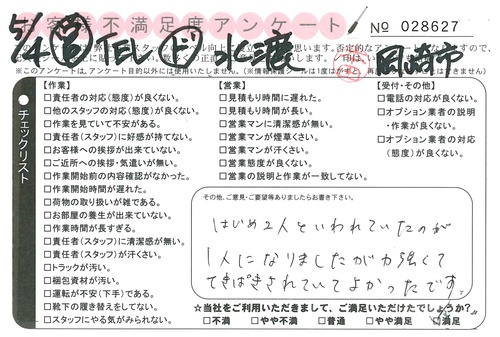 お客様不満足度アンケート
No 028627
5/4 TEL 水漉 岡崎市
【作業】
□責任者の対応(態度)が良くない。
□他のスタッフの対応(態度)が良くない。
□作業が荒くて不安があった。
□責任者(スタッフ)に好感が持てない。
□お客様への挨拶が出来ていない。
□ご近所への挨拶・気遣いが無い。
□作業開始前の内容確認がなかった。
□作業開始時間が遅れた。
□荷物の取り扱いが雑である。
□お部屋の養生が出来ていない。
□作業時間が長すぎる。
□責任者(スタッフ)に清潔感が無い。
□責任者(スタッフ)が汗くさい。
□トラックが汚い。
□梱包資材が汚い。
□運転が不安(下手)である。
□靴下の履き替えをしてない。
□スタッフにやる気がみられない。
【営業】
□見積もり時間に遅れた。
□見積もり時間が長い。
□営業マンに清潔感が無い。
□営業マンが煙草くさい。
□営業マンが汗くさい。
□営業態度が良くない。
□営業の説明と作業が一致してない。
【受付・その他】
□電話の対応が良くない。
□オプション業者の説明
・作業が良くない。
□オプション業者の対応
(態度)が良くない。
チェックリスト
その他、ご意見・ご要望等ありましたらお書き下さい。
はじめ2人といわれていたのが
1人になりましたが力強くて
てきぱきされていてよかったです。
☆当社をご利用いただきまして、ご満足いただけたでしょうか?
□不満 □やや不満 □普通 □やや満足 □満足